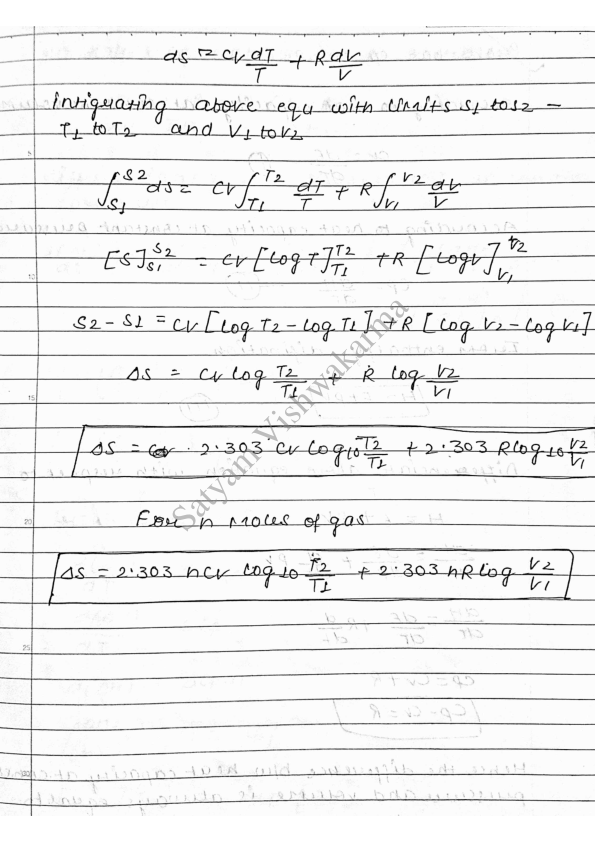 ds = Cv dT/T + R dv/V
Intiguating above equ with limits S1 to S2 -
T1 to T2 and V1 to V2
∫S1^S2 ds = Cv ∫T1^T2 dT/T + R ∫V1^V2 dv/V
[S]S1^S2 = Cv [Log T]T1^T2 + R [Log V]V1^V2
S2 - S1 = Cv [Log T2 - Log T1] + R [Log V2 - Log V1]
ΔS = Cv log T2/T1 + R log V2/V1
ΔS = 2.303 Cv Log10 T2/T1 + 2.303 R log10 V2/V1
For n moles of gas
ΔS = 2.303 nCv log10 T2/T1 + 2.303 nR log V2/V1
Satyam Vishwakarma